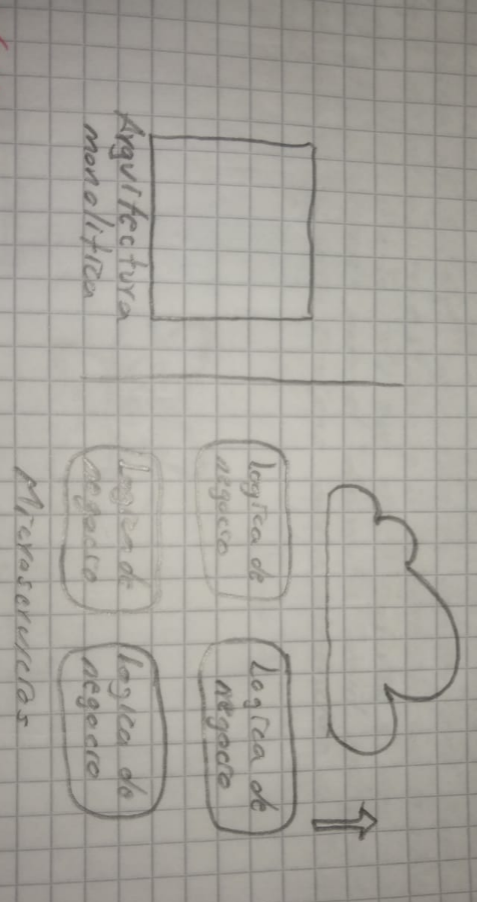 Arquitectura
monolitica
logica de
negocio
logica de
negocio
logica de
negocio
logica de
negocio
Microservicios